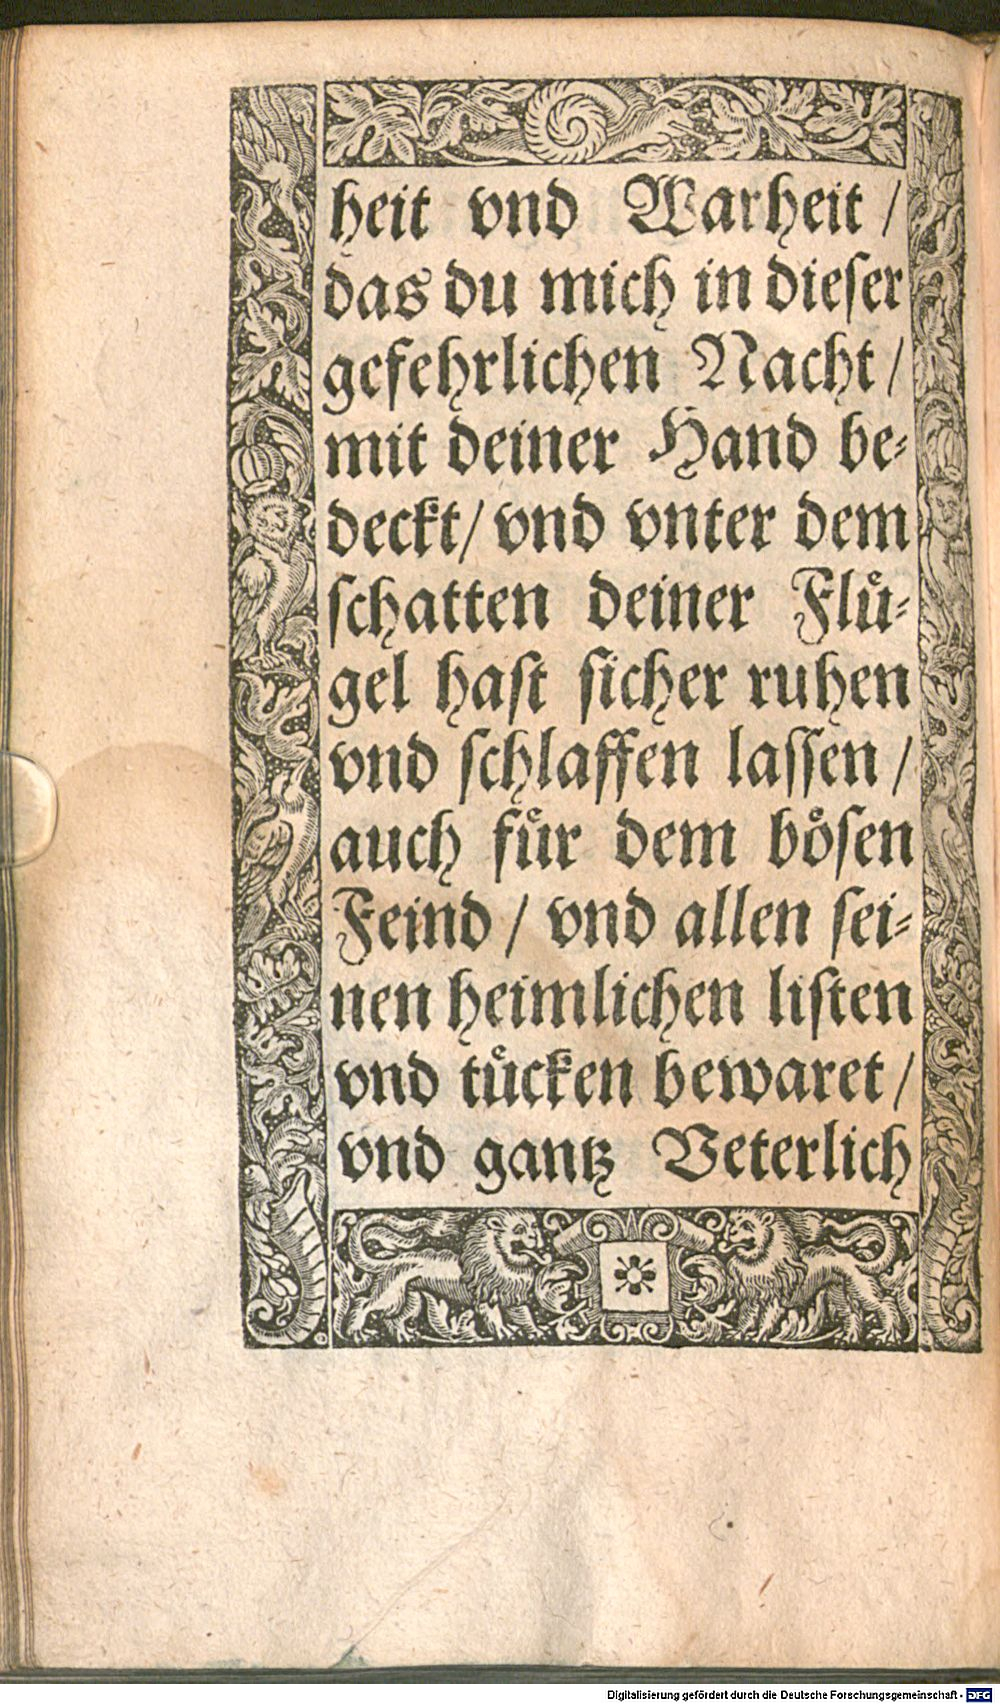 heit vnd Warheit /
das du mich in dieſer
gefehrlichen Nacht /
mit deiner Hand be⸗
deckt / vnd vnter dem
ſchatten deiner Fluͤ⸗
gel haſt ſicher ruhen
vnd ſchlaffen laſſen /
auch fuͤr dem boͤſen
Feind / vnd allen ſei⸗
nen heimlichen liſten
vnd tuͤcken bewaret /
vnd gantz Veterlich
Digitalisierung gefördert durch die Deutsche Forschungsgemeinschaft - DFG